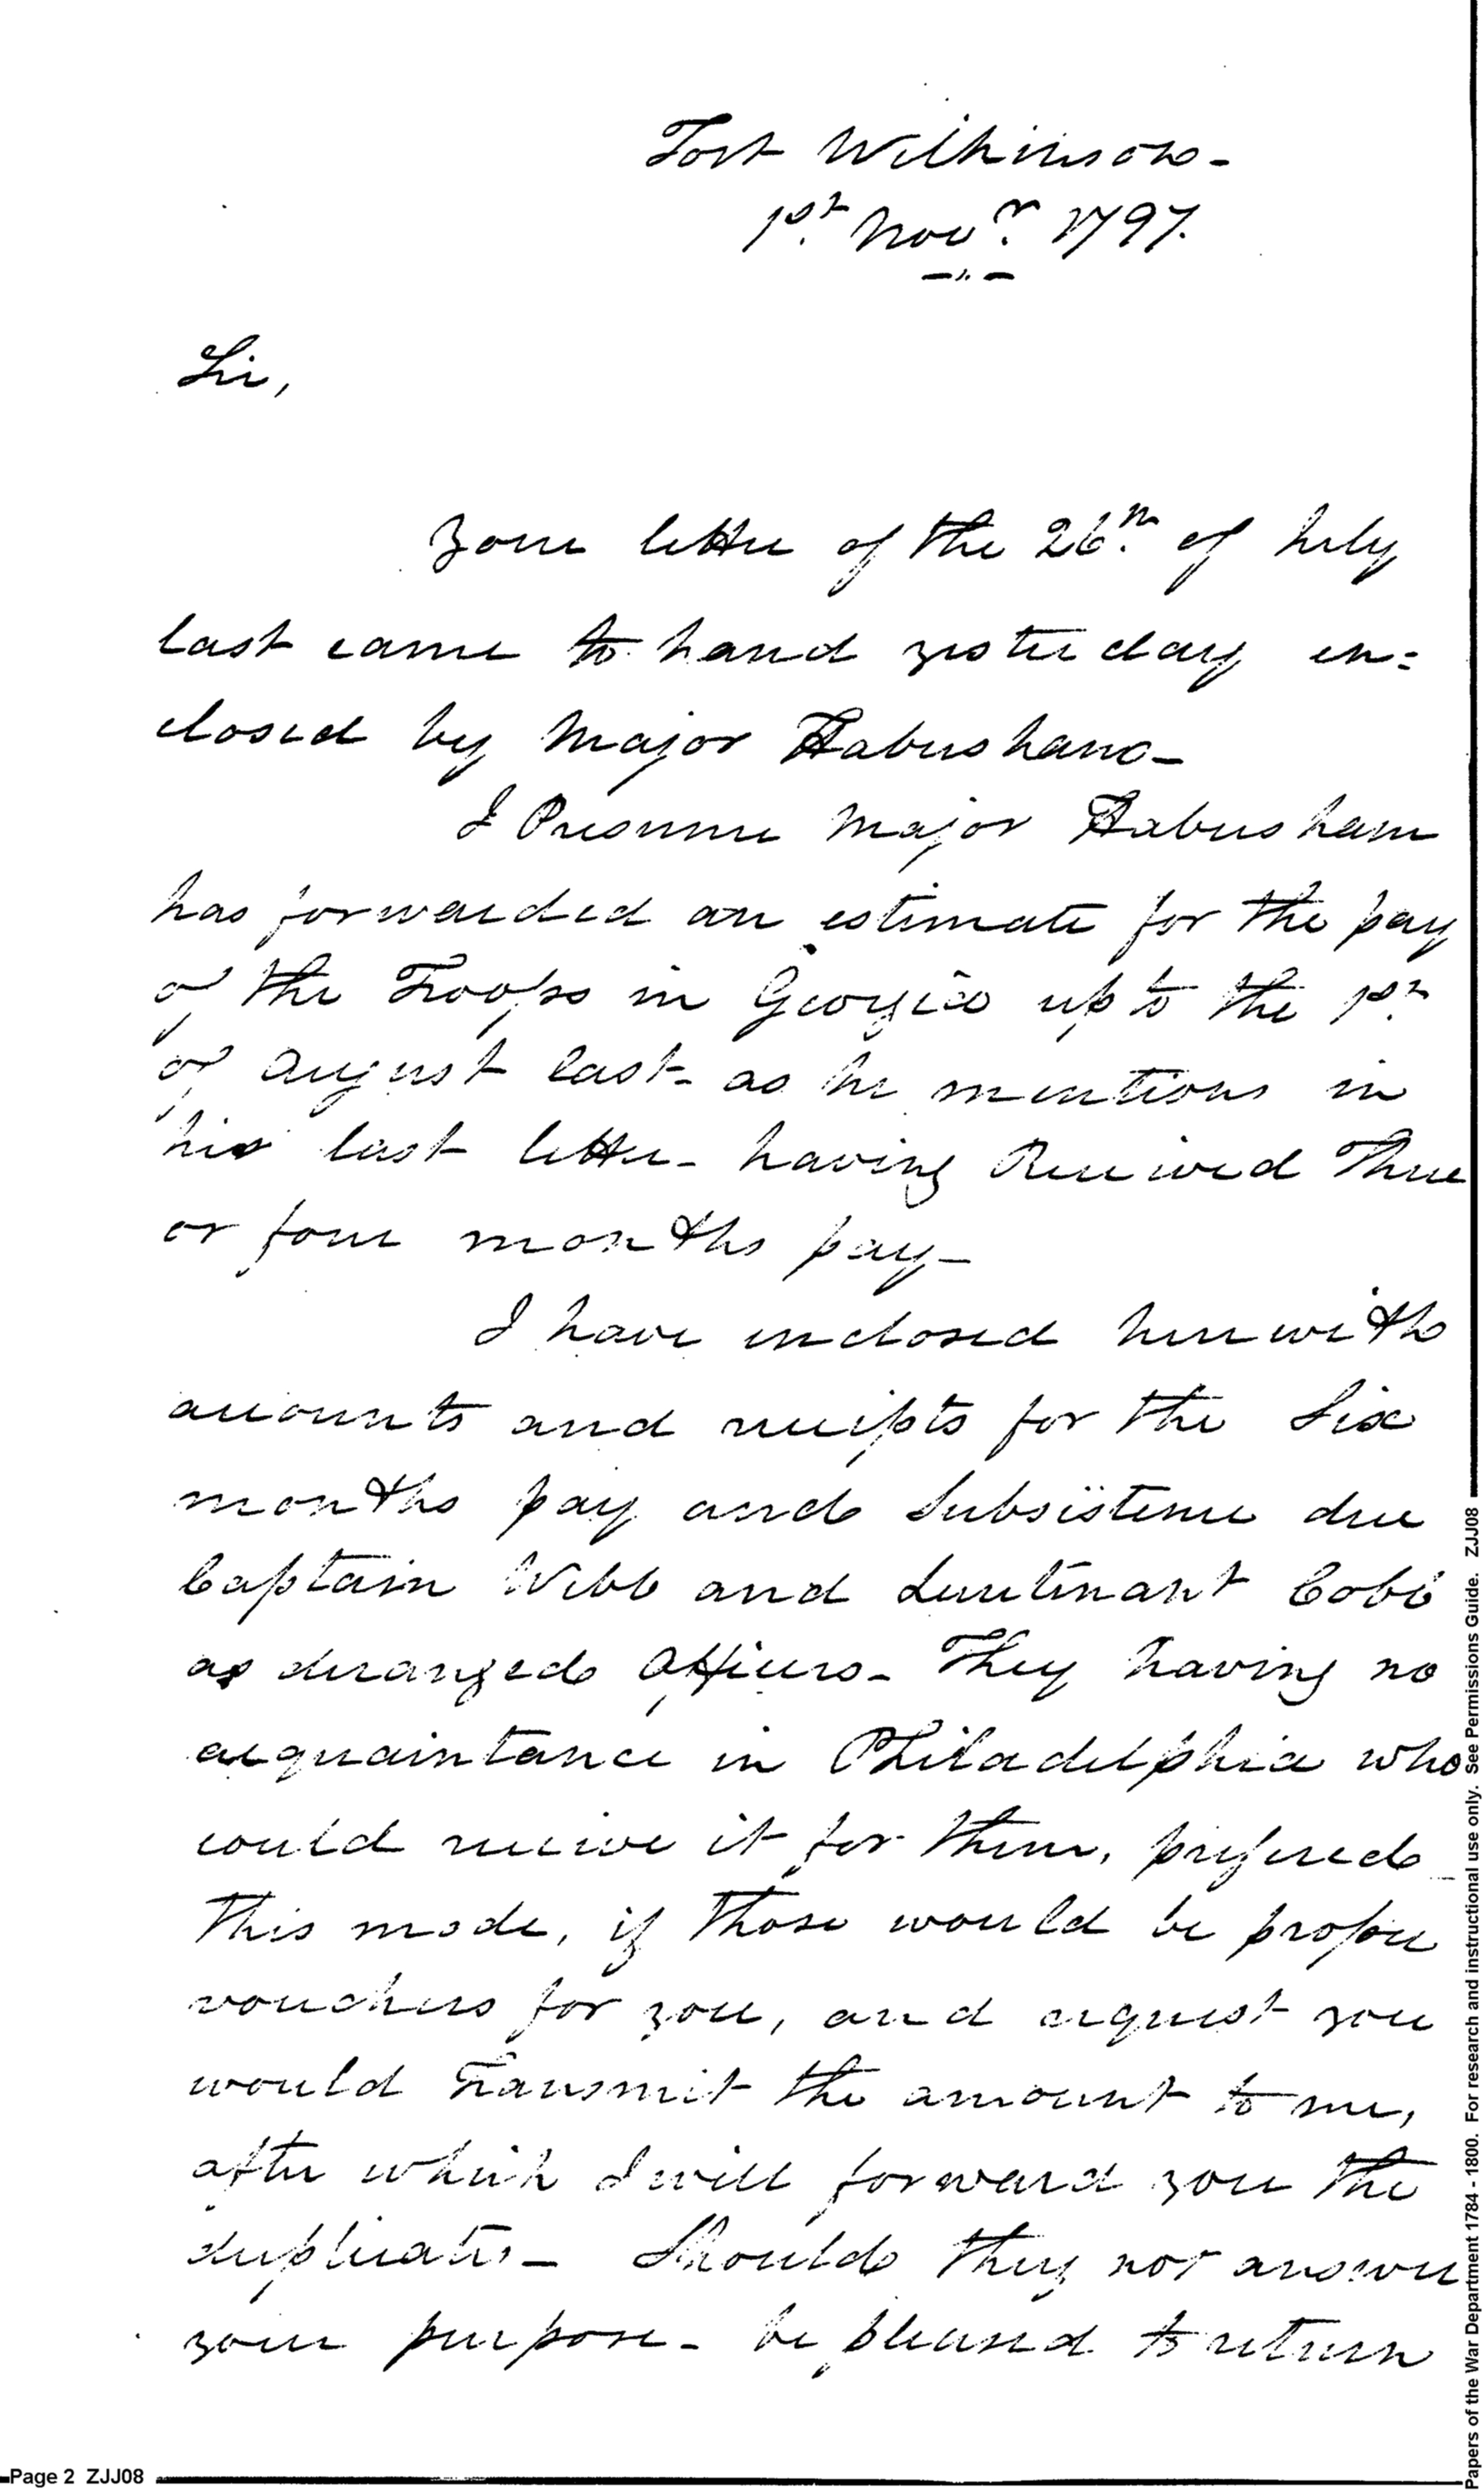 Fort Wilkinson-
1st. Novr. 1797.
Sir,
Your letter of the 26th. of July
last came to hand yesterday en=
closed by Major Habersham-
I Presume Major Habersham
has forwarded an estimate for the pay
of the Troops in Georgia up to the 1st.
of August last- as he mentions in
his last letter- having Received Three
or four months pay-
I have inclosed herewith
accounts and receipts for the Six
months pay and Subsistence due
Captain Webb and Lieutenant Cobb
as deranged Officers- They having no
acquaintance in Philadelphia who
could receive it for them, prefered
This mode, if Those would be proper
vouchers for you, and request you
would Transmit the amount to me,
after which I will forward you the
duplicates- Should they not answer
your purpose- be pleased to return
Page 2 ZJJ08
Papers of the War Department 1784 - 1800. For research and instructional use only. See Permissions Guide. ZJJ08